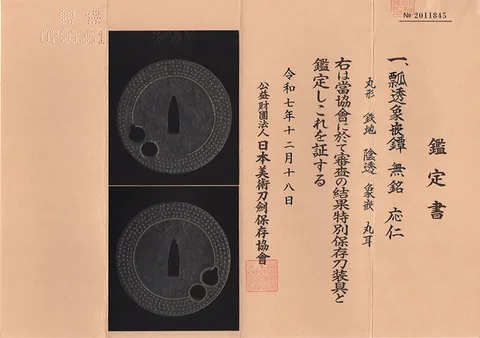 № 2011845
鑑定書
一、瓢透象嵌鐔 無銘 応仁
丸形 鉄地 陰透 象嵌 丸耳
右は當協會に於て審査の結果特別保存刀装具と
鑑定しこれを証する
令和七年十二月十八日
公益財團法人 日本美術刀劍保存協會